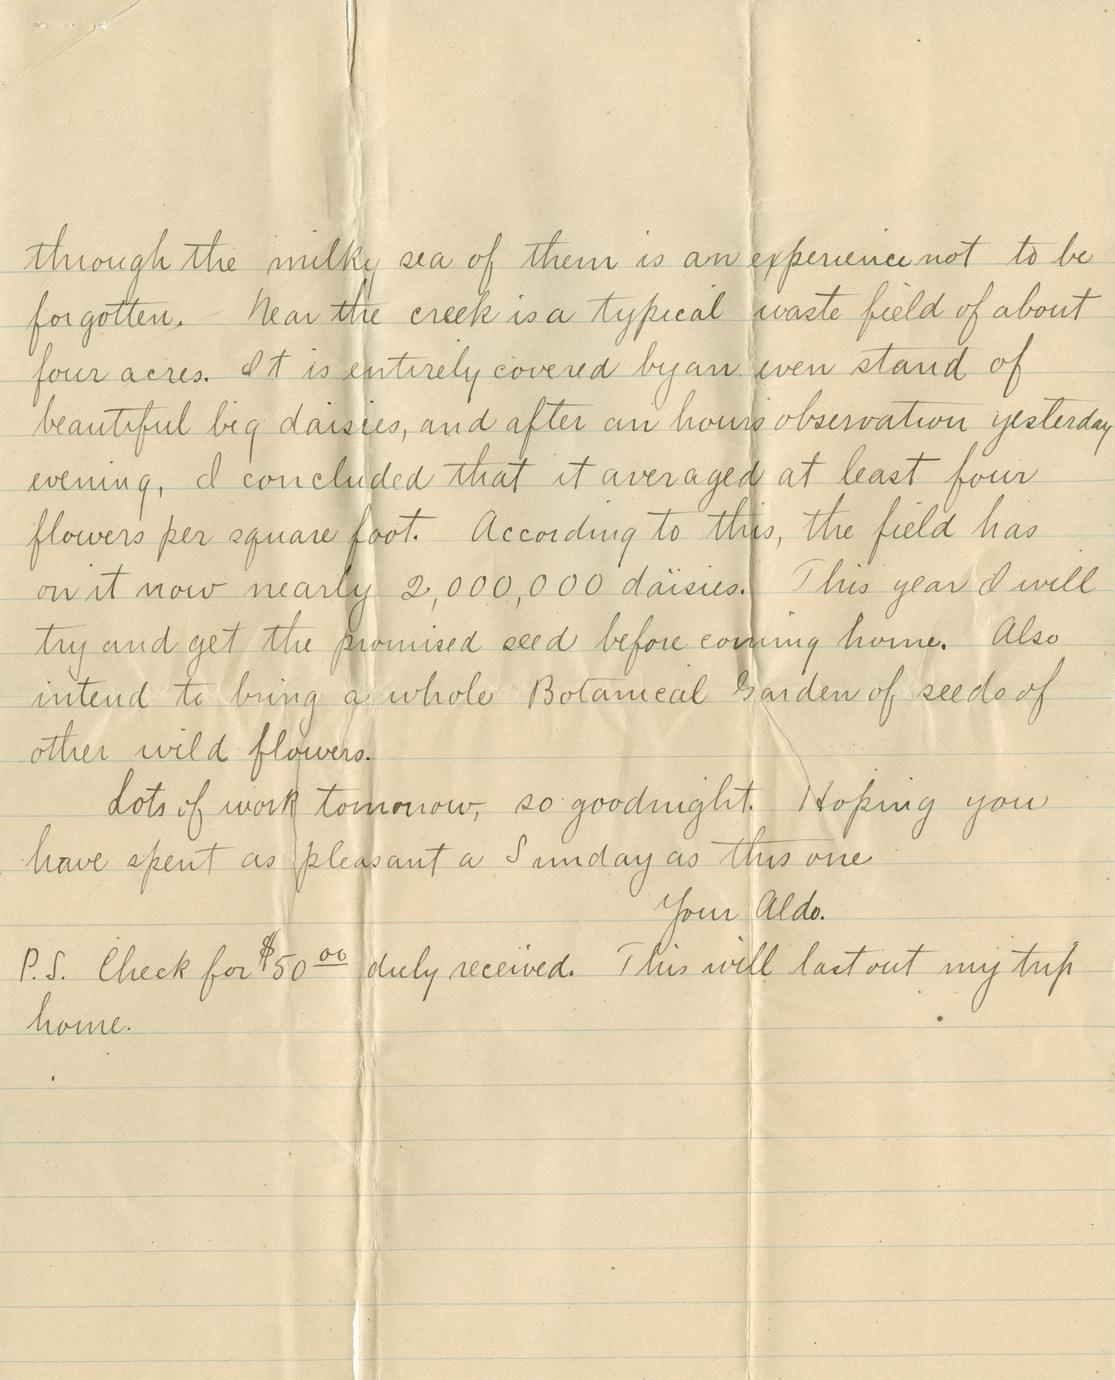 through the milky sea of them is an experience not to be
forgotten. Near the creek is a typical waste field of about
four acres. It is entirely covered by an even stand of
beautiful big daisies, and after an hours observation yesterday
evening, I concluded that it averaged at least four
flowers per square foot. According to this, the field has
on it now nearly 2,000,000 daisies. This year I will
try and get the promised seed before coming home. Also
intend to bring a whole Botanical Garden of seeds of
other wild flowers.
Lots of work tomorrow, so goodnight. Hoping you
have spent as pleasant a Sunday as this one
Your Aldo.
P.S. Check for $50 00 duly received. This will last out my trip
home.